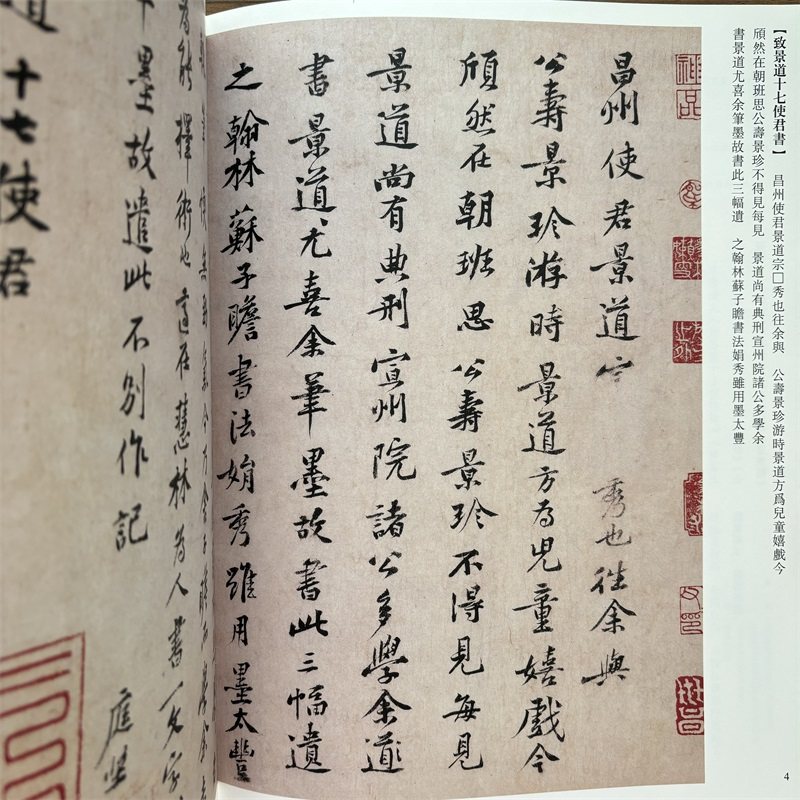 【致景道十七使君書】　昌州使君景道宗□秀也往余與　公壽景珍游時景道方爲兒童嬉戲今
頎然在朝班思公壽景珍不得見每見　景道尚有典刑宣州院諸公多學余
書景道尤喜余筆墨故書此三幅遺　之翰林蘇子瞻書法娟秀雖用墨太豐
昌州使君景道　秀也往余與
公壽景珍游時景道方為兒童嬉戲今
頎然在朝班思公壽景珍不得見每見
景道尚有典刑宣州院諸公多學余道
書景道尤喜余筆墨故書此三幅遺
之翰林蘇子瞻書法娟秀雖用墨太豐
4
為能擇術也適在慧林為人書一文字
墨故遣此不別作記
庭堅
道十七使君